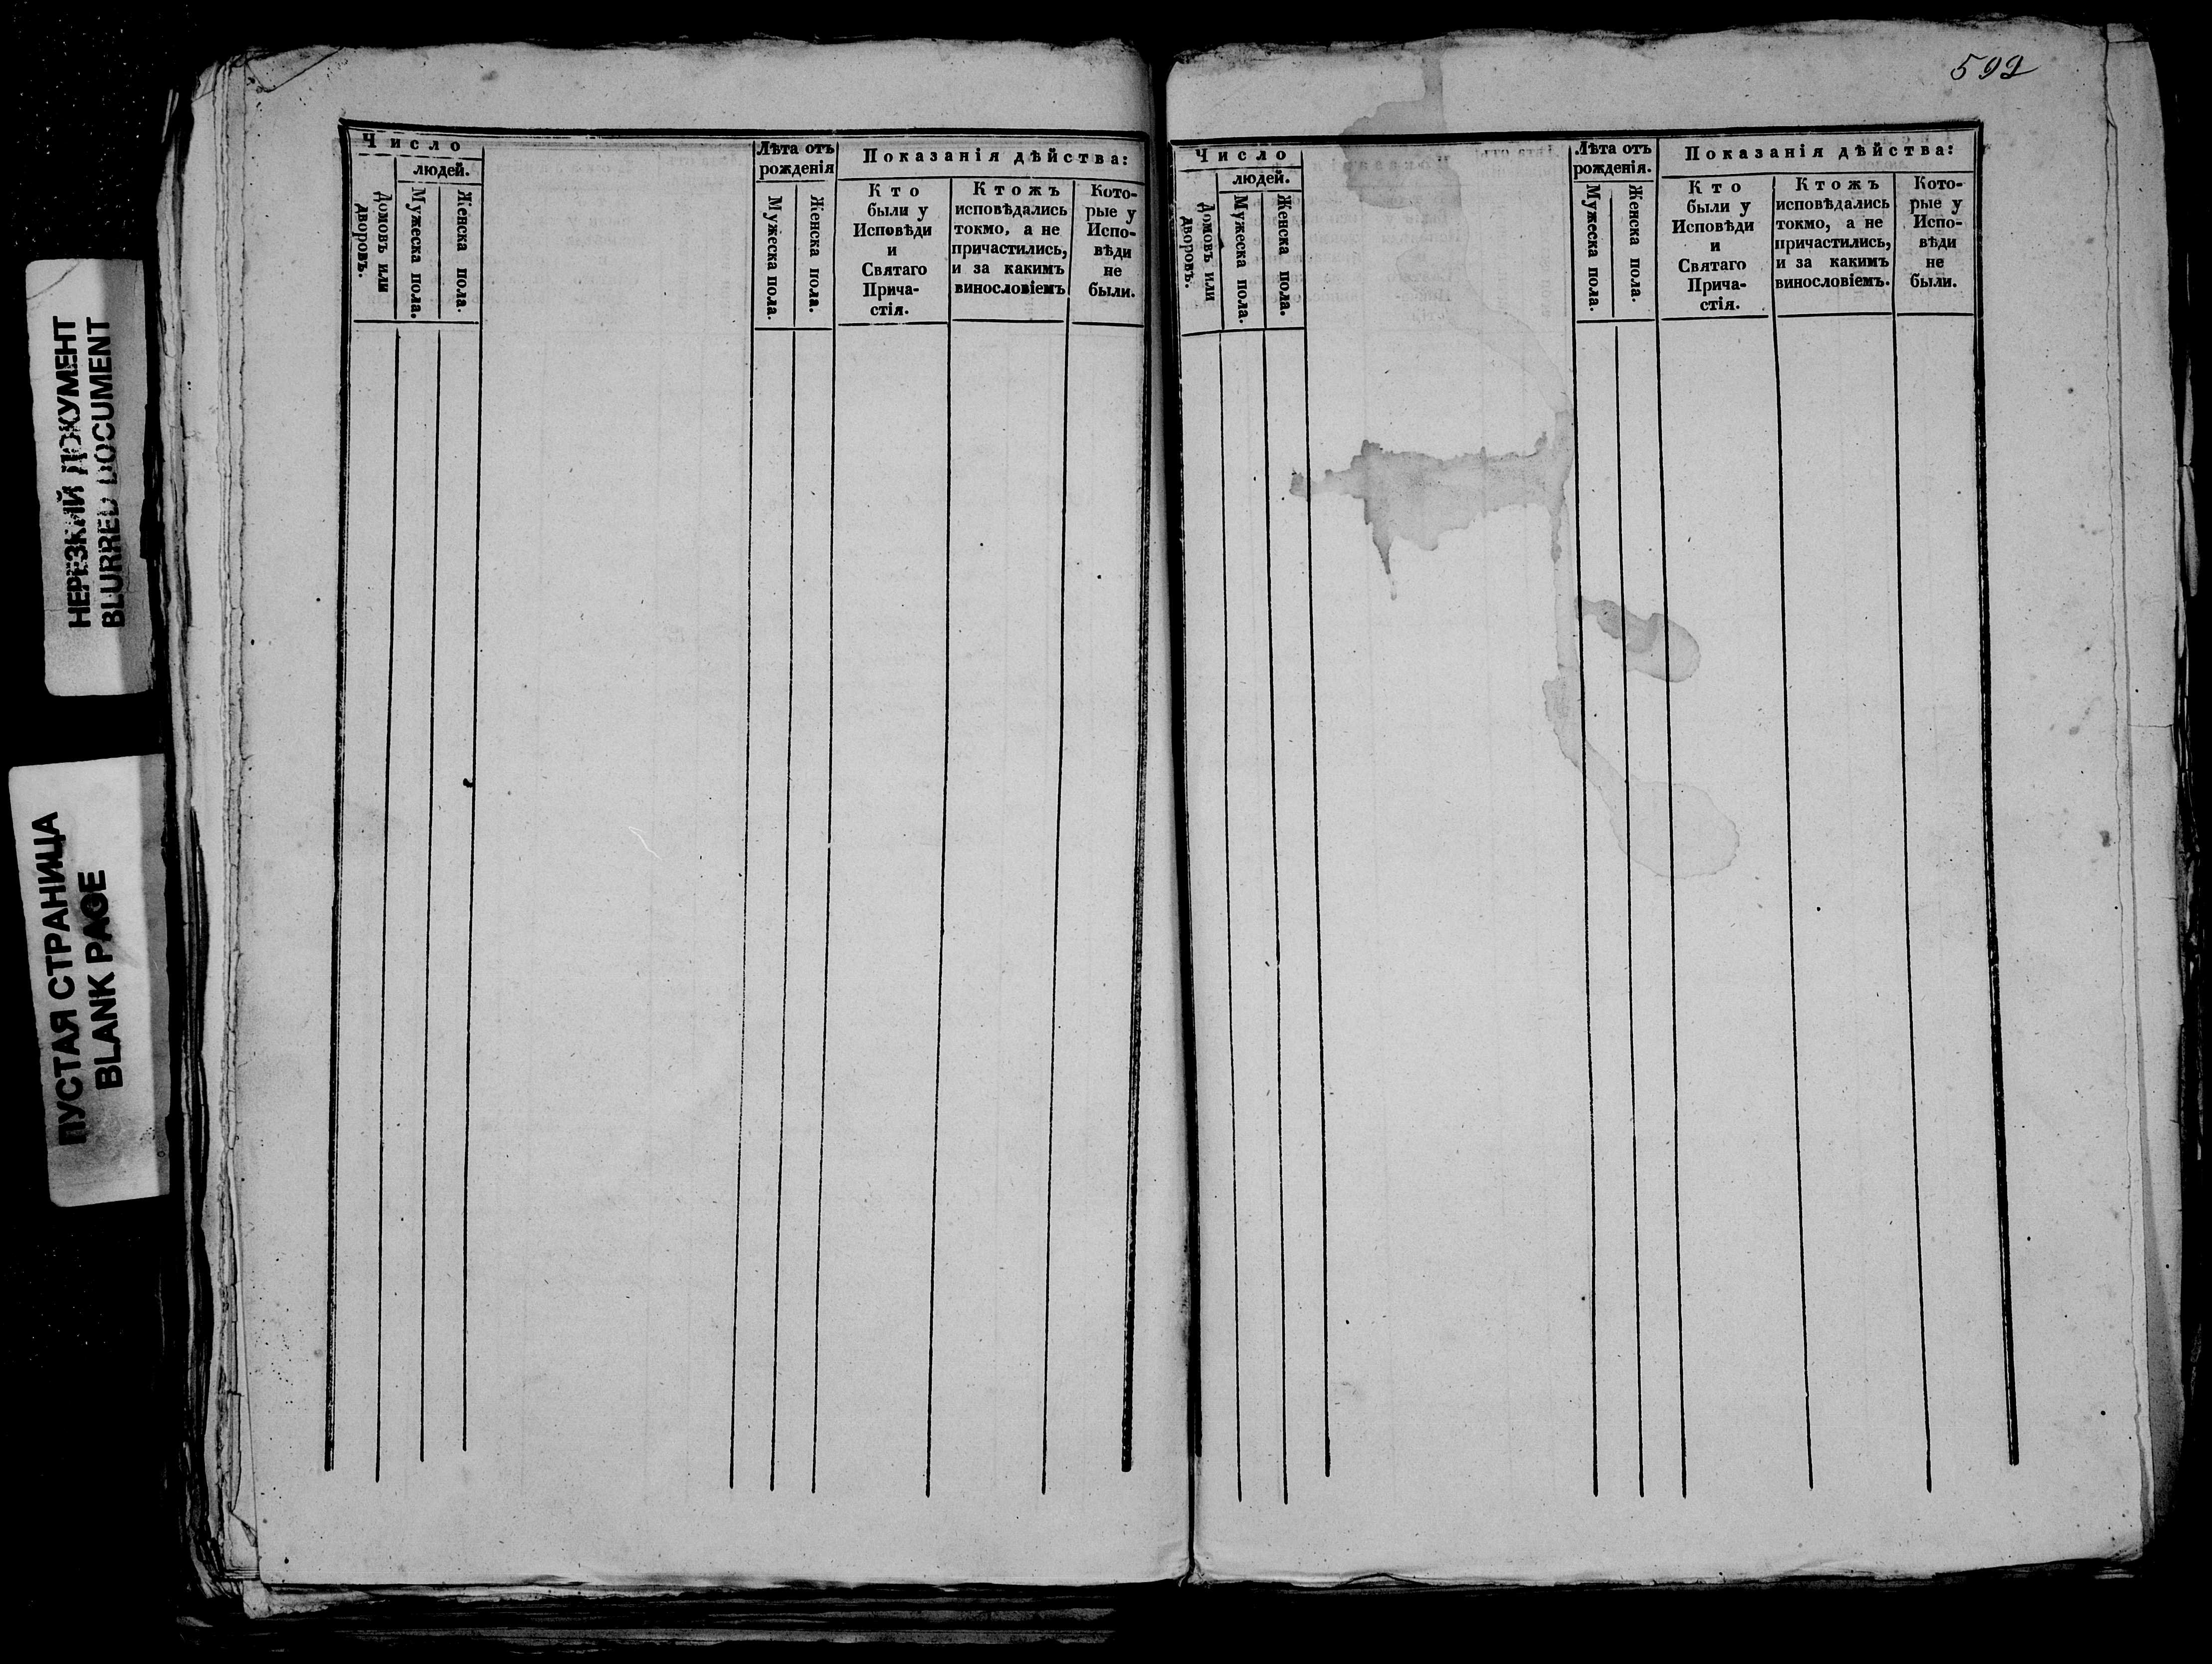 НЕРЕЗКИЙ ДОКУМЕНТ
BLURRED DOCUMENT
ПУСТАЯ СТРАНИЦА
BLANK PAGE
Число
людей.
Домовъ или
дворовъ.
Мужеска пола.
Женска пола.
Лѣта отъ
рожденія
Мужеска пола.
Женска пола.
Показанія дѣйства:
Кто
были у
Исповѣди
и
Святаго
Прича-
стія.
Ктожъ
исповѣдались
токмо, а не
причастились,
и за какимъ
винословіемъ
Кото-
рые у
Испо-
вѣди
не
были.
599
Число
людей.
Домовъ или
дворовъ.
Мужеска пола.
Женска пола.
Лѣта отъ
рожденія.
Мужеска пола.
Женска пола.
Показанія дѣйства:
Кто
были у
Исповѣди
и
Святаго
Прича-
стія.
Ктожъ
исповѣдались
токмо, а не
причастились,
и за какимъ
винословіемъ.
Кото-
рые у
Испо-
вѣди
не
были.